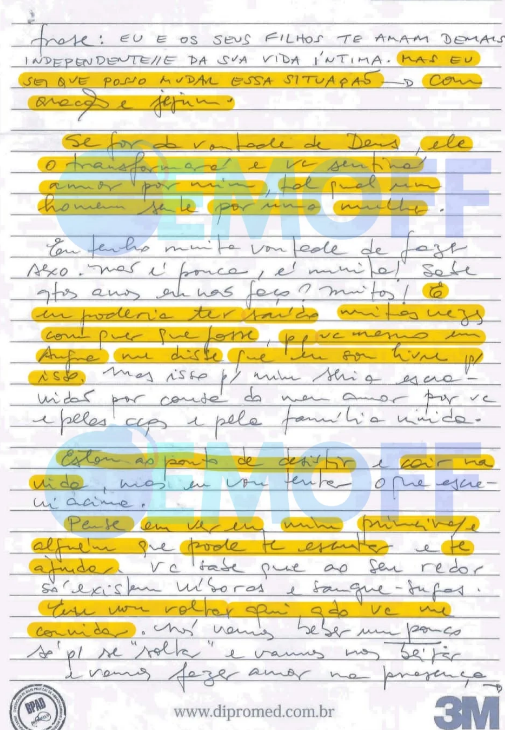 frase: EU E OS SEUS FILHOS TE AMAM DEMAIS
INDEPENDENTE//E DA SUA VIDA ÍNTIMA. MAS EU
SEI QUE POSSO MUDAR ESSA SITUAÇÃO → COM
oração e jejum.
Se for da vontade de Deus, ele
o transformará e vc sentirá
amor por mim, tal qual um
homem sente por uma mulher.
Eu tenho muita vontade de fazer
sexo. Não é pouca, é muita! Sabe
qtos anos eu não faço? Muitos! E
eu poderia ter saído muitas vezes
com quer que fosse, pq vc mesmo em
Angra me disse que eu sou livre p/
isso. Mas isso p/ mim seria escra-
vidão por causa do meu amor por vc
e pelas cças e pela família unida.
Estou ao ponto de desistir e cair na
vida, mas eu vou tentar o que escre-
vi acima.
Pense em ver em mim primeiro//e
alguém que pode te escutar e te
ajudar. Vc sabe que ao seu redor
só existem víboras e sangue-sugas.
Eu vou voltar aqui qdo vc me
convidar. Nós vamos beber um pouco
só p/ se "soltar" e vamos nos beijar
e vamos fazer amor na presença →
EMOFF
EMOFF
BPAD
www.dipromed.com.br
3M